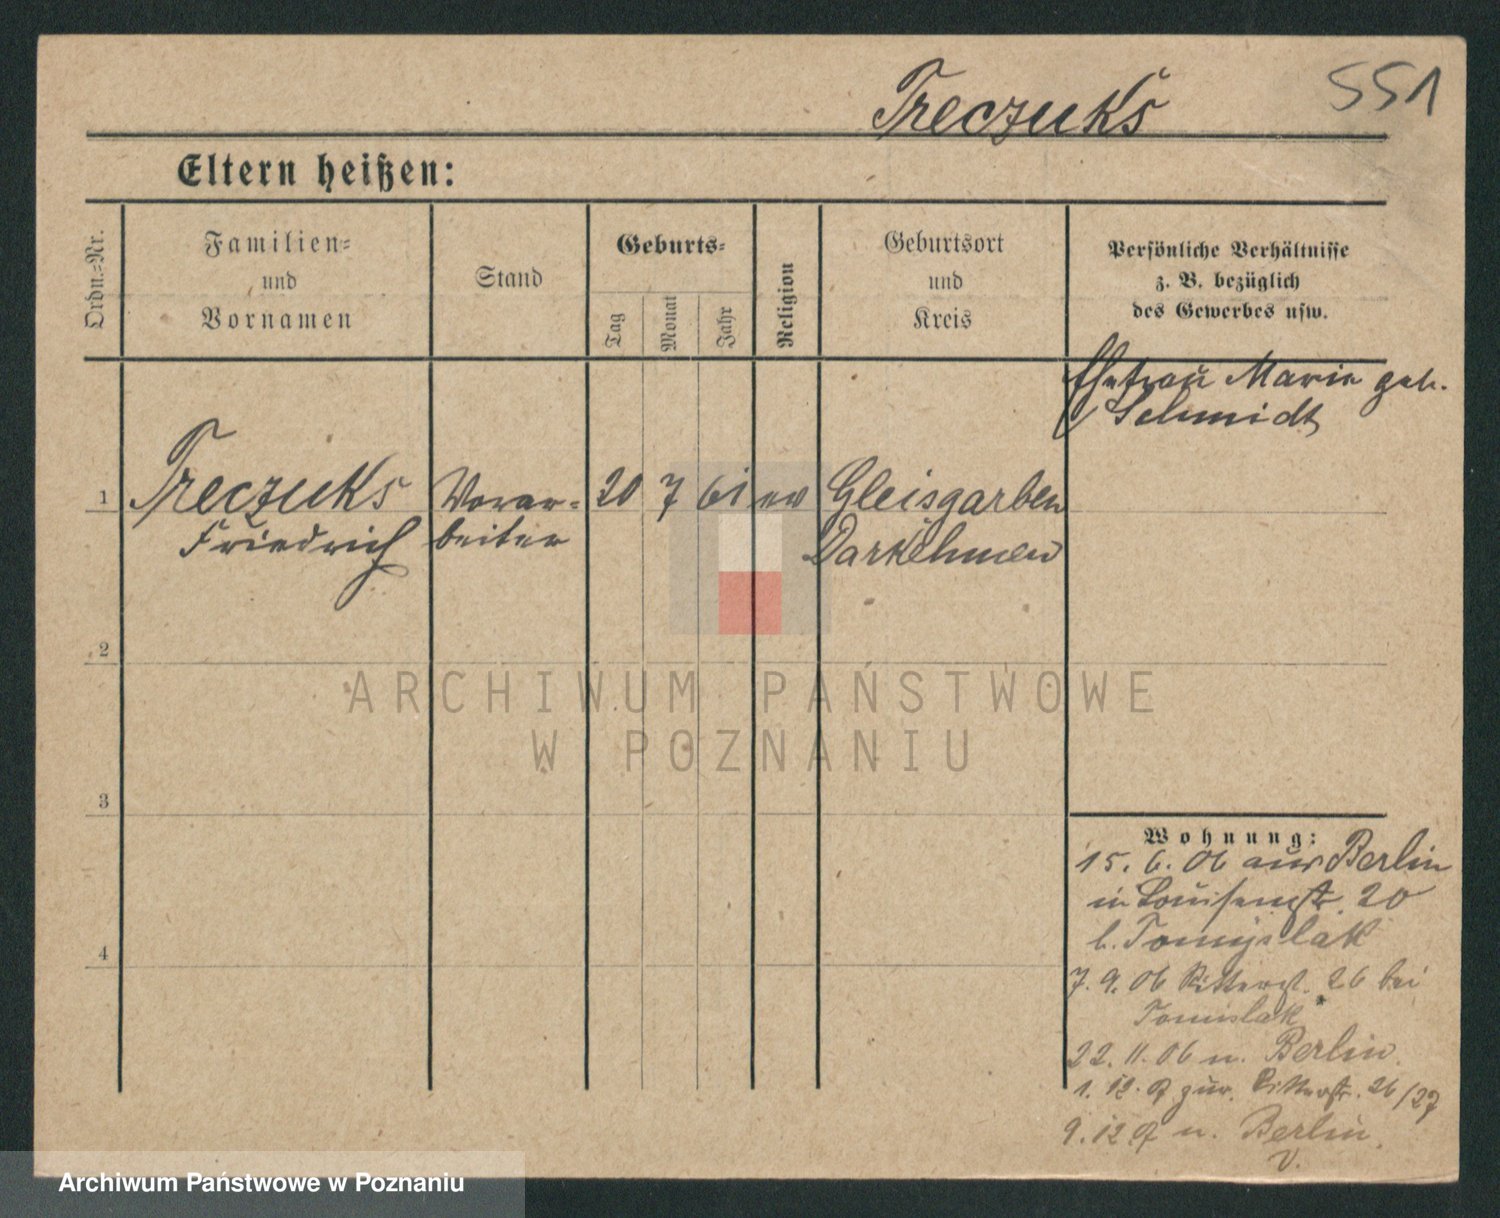 551
Treczuks
Eltern heißen:
Ordn.=Nr.
Familien=
und
Vornamen
Stand
Geburts=
Tag
Monat
Jahr
Religion
Geburtsort
und
Kreis
Persönliche Verhältnisse
z. B. bezüglich
des Gewerbes usw.
Ehefrau Marie geb.
Schmidt
1
Treczuks
Friedrich
Vorar=
beiter
20
7
61
ev
Gleisgarben
Darkehmen
2
3
4
Wohnung:
15. 6. 06 aus Berlin
in Louisenstr. 20
b. Tomyslak
7. 9. 06 Ritterst. 26 bei
Tomislak
22. 11. 06 n. Berlin
1. 12. zur. Ritterstr. 26/27
9. 12 n. Berlin
ARCHIWUM PAŃSTWOWE
W POZNANIU
Archiwum Państwowe w Poznaniu